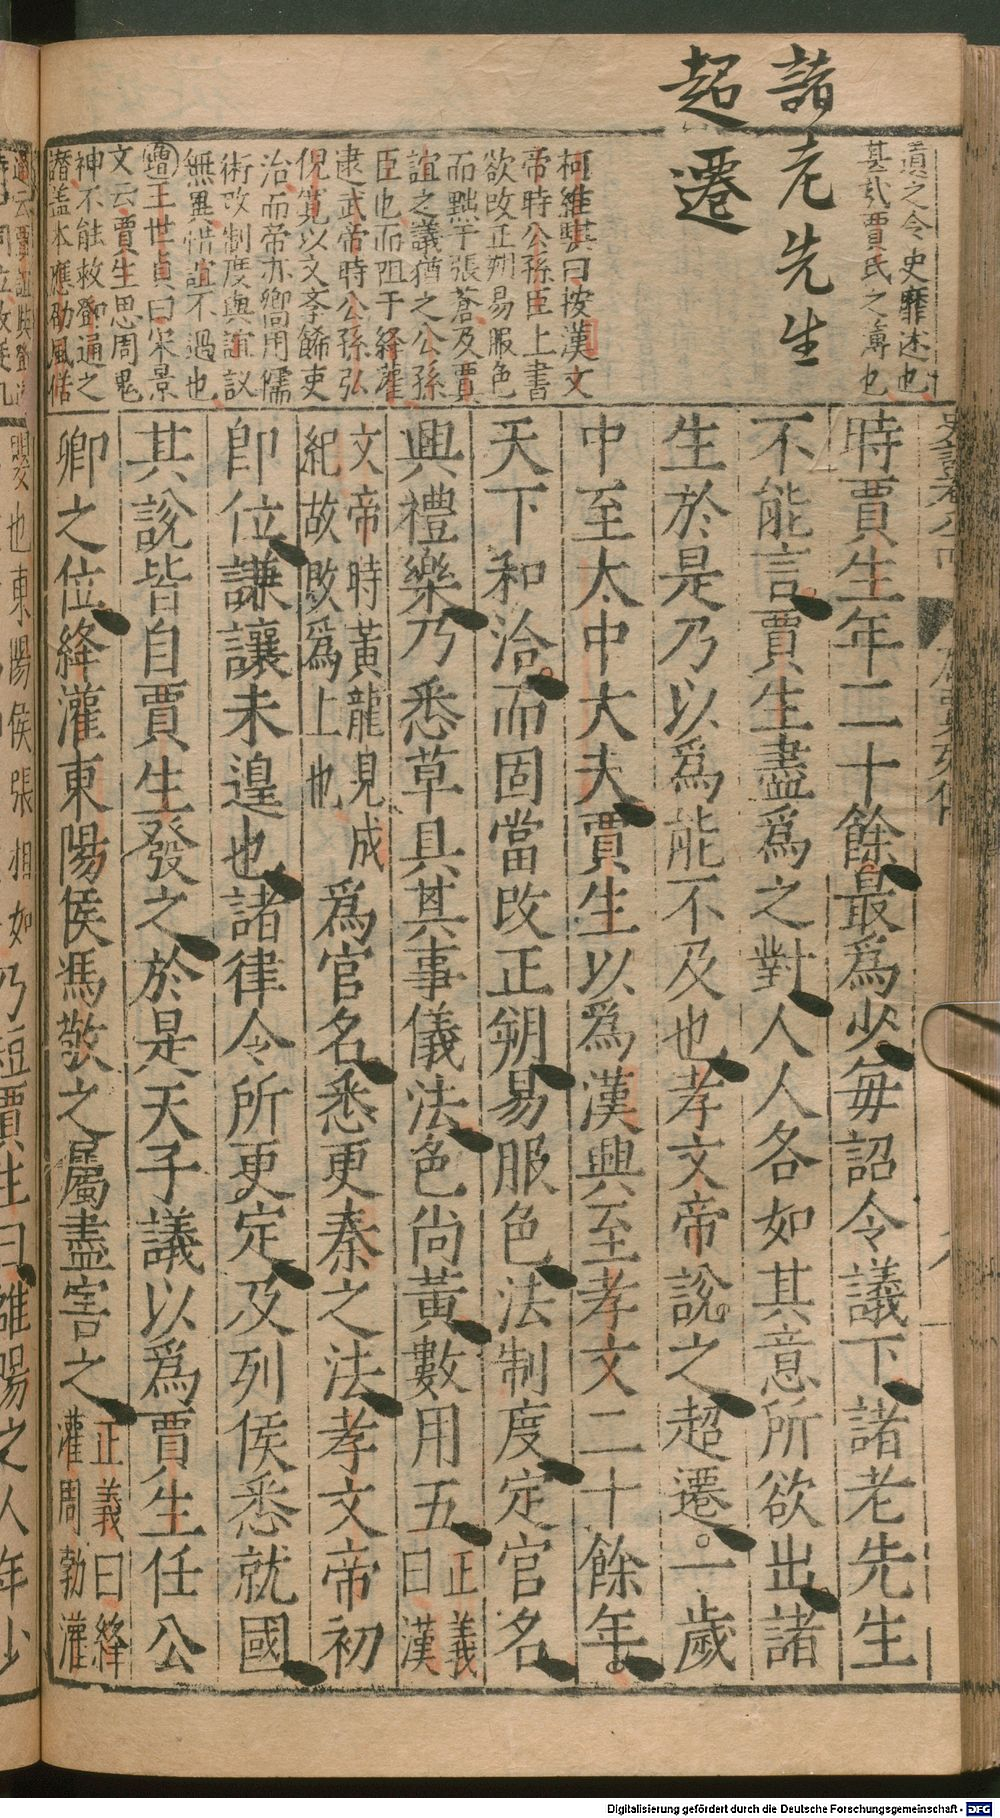 諸老先生
超遷
遺之今史靡述也
甚矣賈氏之簿也
柯維騏曰按漢文
帝時公孫臣上書
欲改正朔易服色
而黜于張蒼及賈
誼之議猶之公孫
臣也而阻于絳灌
逮武帝時公孫弘
倪寬以文李餙吏
治而帝亦嚮用儒
術改制度與誼議
無異惜誼不過也
王世貞曰宋景
文云賈生思周鬼
神不能救鄧通之
譖盖本應劭風俗
時賈生年二十餘最爲少每詔令議下諸老先生
不能言賈生盡爲之對人人各如其意所欲出諸
生於是乃以爲能不及也孝文帝說之超遷一歲
中至太中大夫賈生以爲漢興至孝文二十餘年
天下和洽而固當改正朔易服色法制度定官名
興禮樂乃悉草具其事儀法色尚黃數用五正義
曰漢
文帝時黃龍見成
紀故改爲上也
爲官名悉更秦之法孝文帝初
即位謙讓未遑也諸律令所更定及列侯悉就國
其說皆自賈生發之於是天子議以爲賈生任公
卿之位絳灌東陽侯馮敬之屬盡害之正義曰絳
灌周勃灌
也東陽侯張相如乃短賈生曰雒陽之人年少
Digitalisierung gefördert durch die Deutsche Forschungsgemeinschaft - DFG